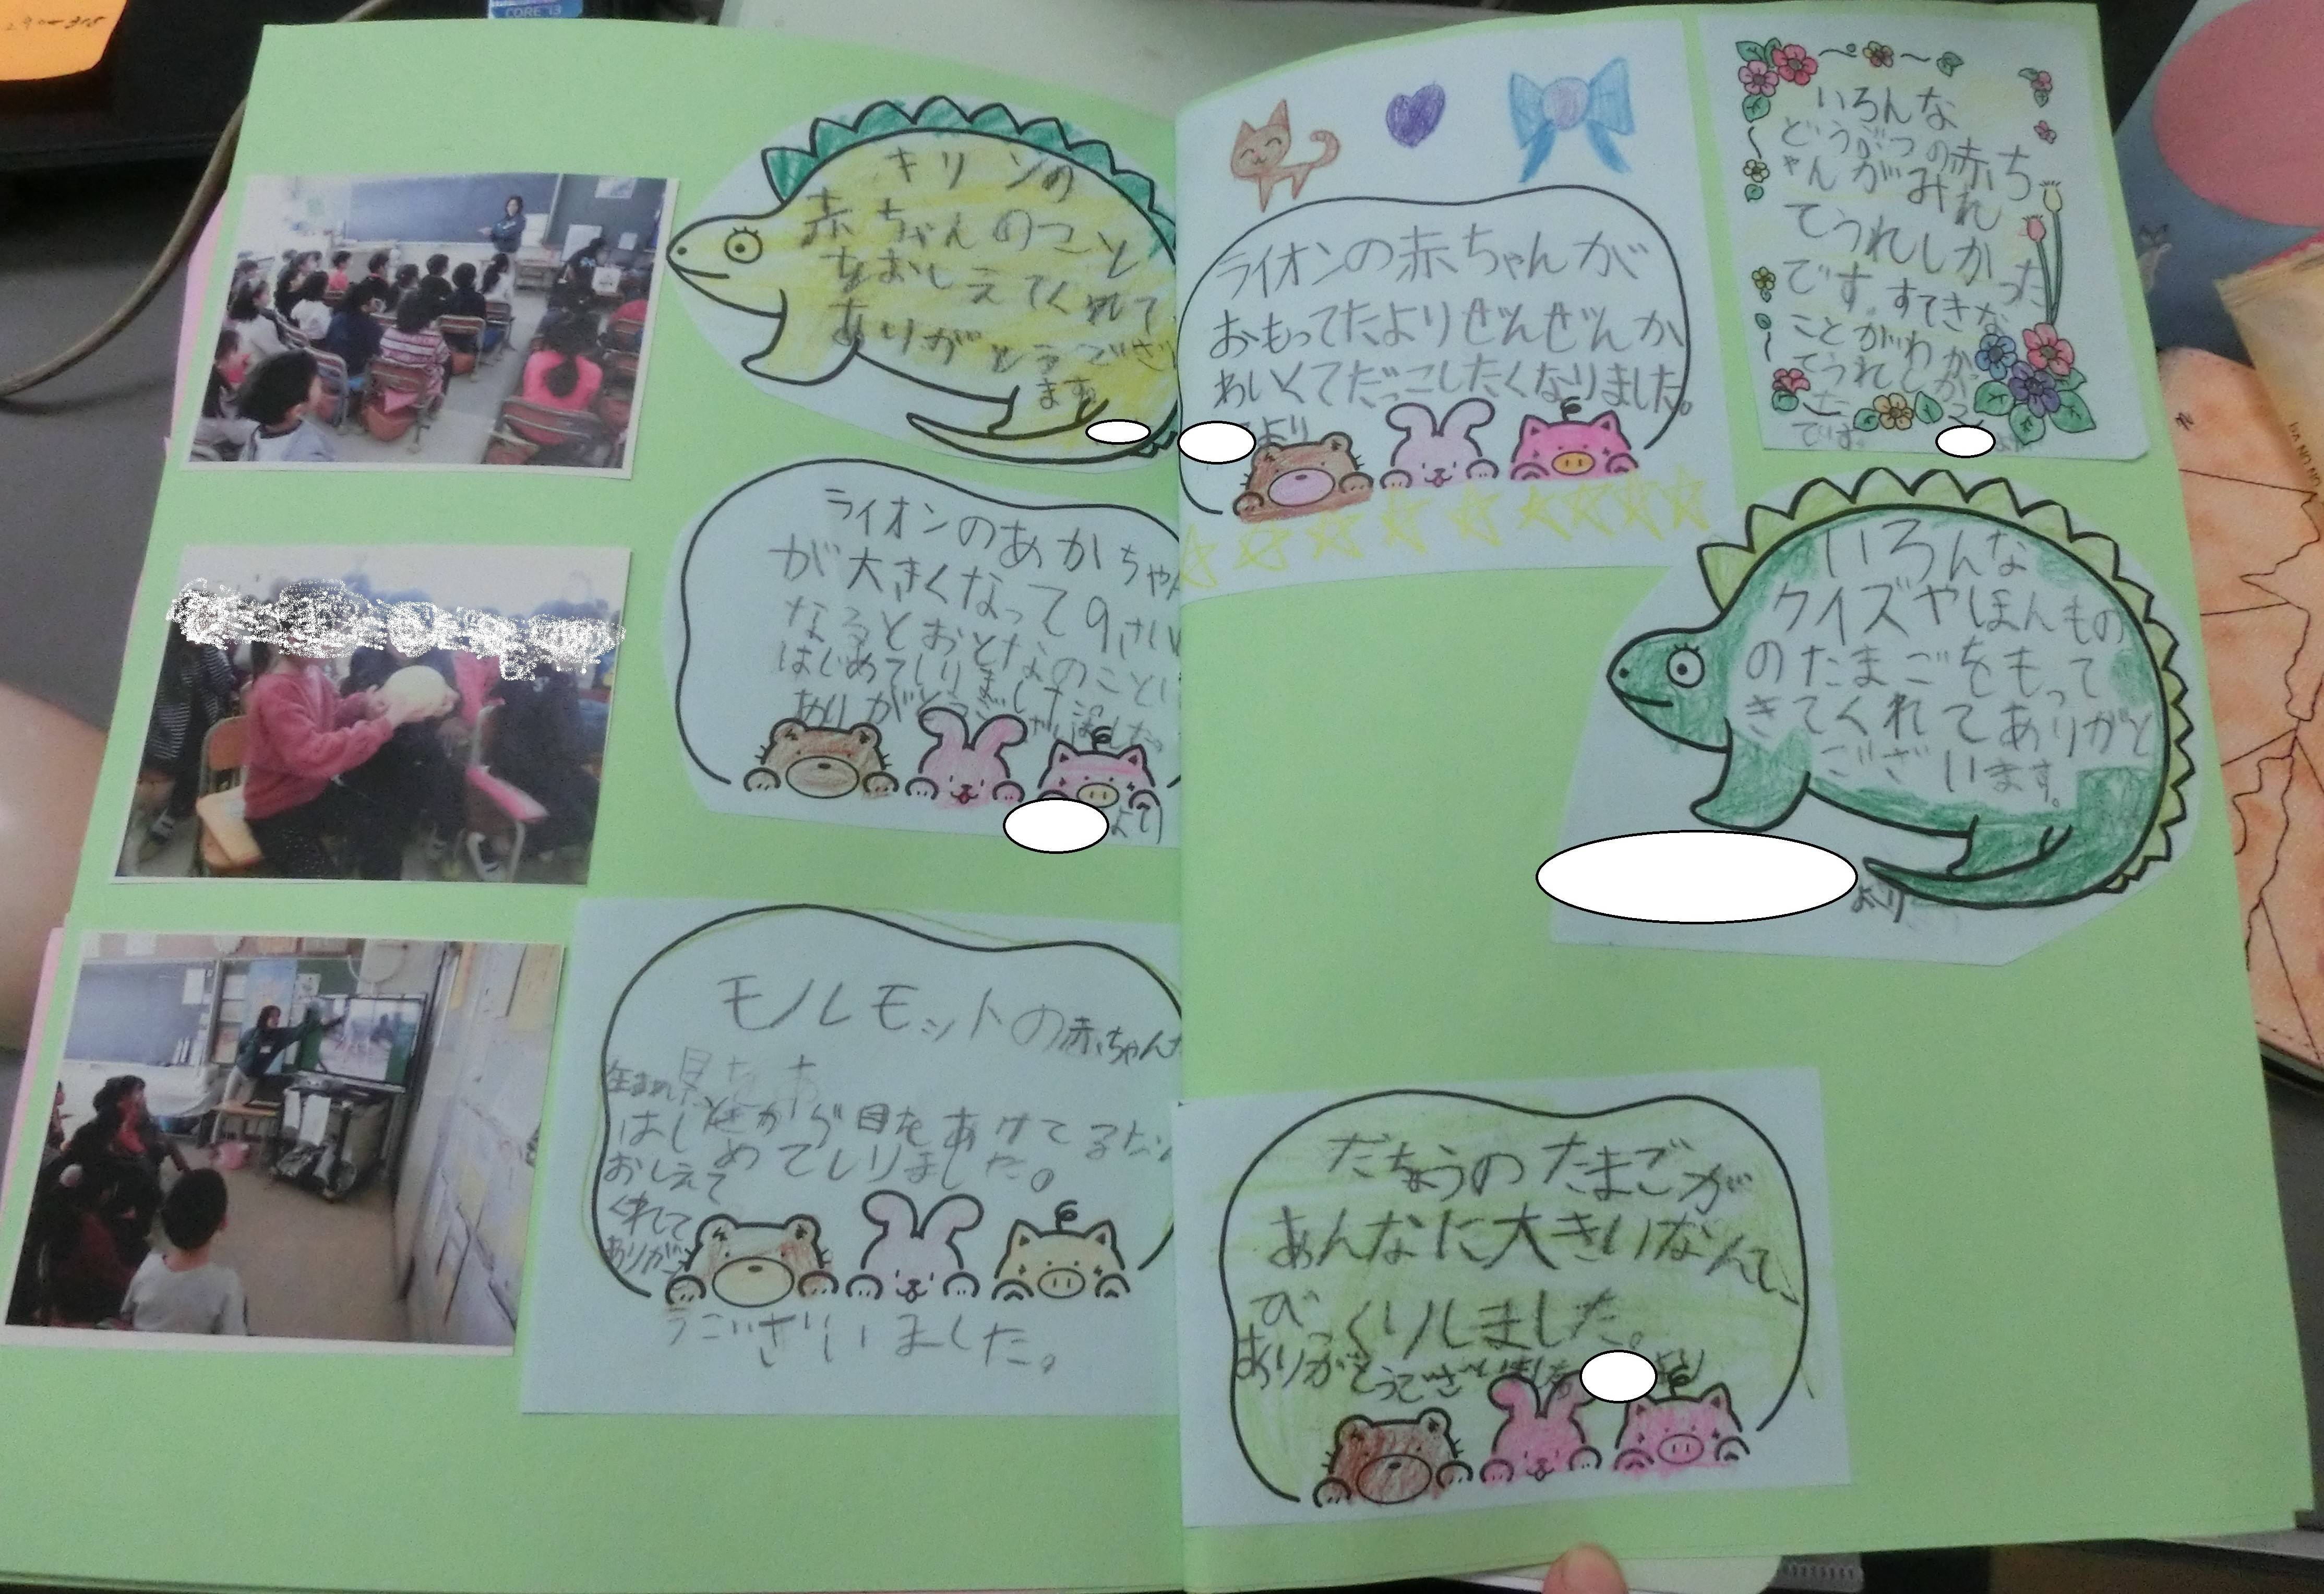 CORE i3
キリンの
赤ちゃんのこと
をおしえてくれて
ありがとうござい
ます
ライオンのあかちゃん
が大きくなって9さい
なるとおとなのこと
はじめてしりました。
ありがとうございました。
より
モルモットの赤ちゃん
生まれた
ときから目をあけてる
はじめてしりました。
おしえて
くれて
ありがと
うございました。
ライオンの赤ちゃんが
おもってたよりぜんぜんか
わいくてだっこしたくなりました。
より
いろんな
どうぶつの赤ち
ゃんがみれ
てうれしかった
です。すてきな
ことがわかっ
てうれしかっ
た
です。
いろんな
クイズやほんもの
のたまごをもって
きてくれてありがと
ございます。
より
だちょうのたまごが
あんなに大きいなんて、
びっくりしました。
ありがとうございました
より